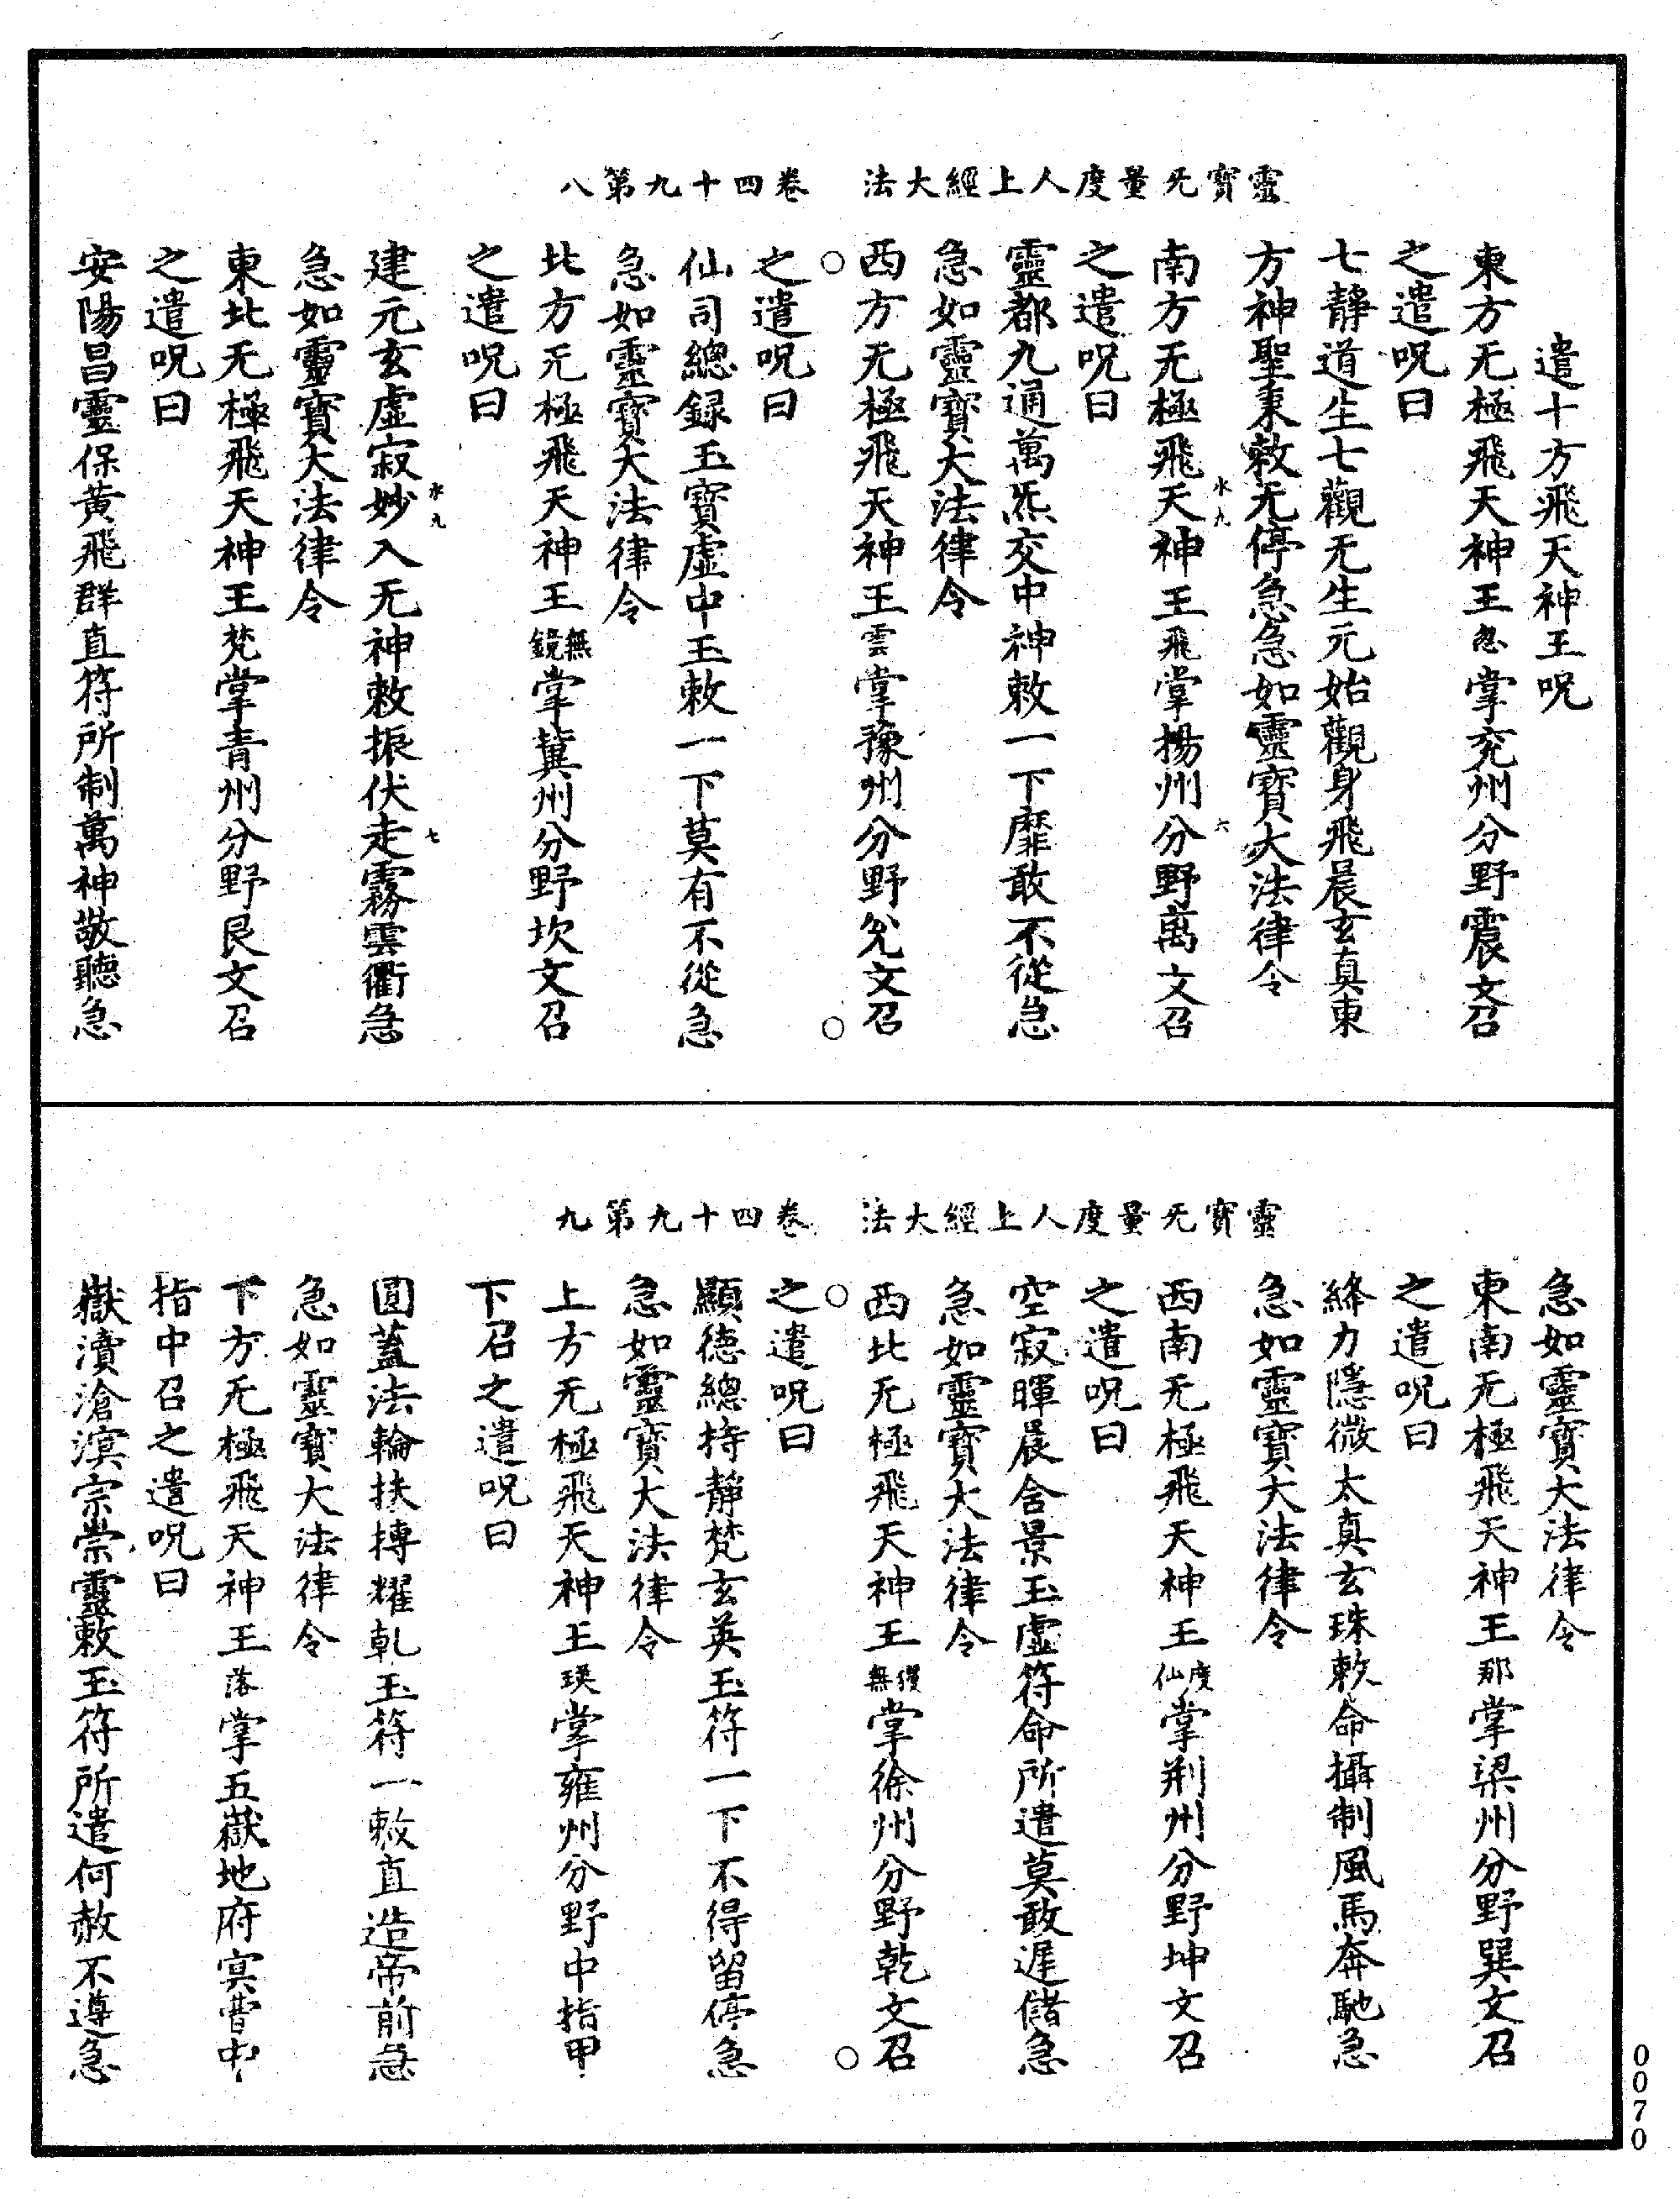 靈寶无量度人上經大法　卷四十九第八
遣十方飛天神王呪
東方无極飛天神王忽掌兖州分野震文召
之遣呪曰
七靜道生七觀无生元始觀身飛晨玄真東
方神聖秉敕无停急急如靈寶大法律令
南方无極飛天神王飛掌揚州分野离文召
水九
六
之遣呪曰
靈都九通萬炁交中神敕一下靡敢不從急
急如靈寶大法律令
西方无極飛天神王雲掌豫州分野兌文召
之遣呪曰
仙司總録玉寶虛中玉敕一下莫有不從急
急如靈寶大法律令
北方无極飛天神王無鏡掌冀州分野坎文召
之遣呪曰
水九
七
建元玄虛寂妙入无神敕振伏走霧雲衢急
急如靈寶大法律令
東北无極飛天神王梵掌青州分野艮文召
之遣呪曰
安陽昌靈保黄飛群直符所制萬神敬聽急
靈寶无量度人上經大法　卷四十九第九
急如靈寶大法律令
東南无極飛天神王那掌梁州分野巽文召
之遣呪曰
絳力隱微太真玄珠敕命攝制風馬奔馳急
急如靈寶大法律令
西南无極飛天神王度仙掌荆州分野坤文召
之遣呪曰
空寂暉晨含景玉虛符命所遣莫敢遲儲急
急如靈寶大法律令
西北无極飛天神王無掌徐州分野乾文召
之遣呪曰
顯德總持静梵玄英玉符一下不得留停急
急如靈寶大法律令
上方无極飛天神王瑛掌雍州分野中指甲
下召之遣呪曰
圓蓋法輪扶摶耀乹玉符一敕直造帝前急
急如靈寶大法律令
下方无極飛天神王落掌五嶽地府冥曹中
指中召之遣呪曰
嶽瀆滄溟宗崇靈敕玉符所遣何赦不遵急
0070